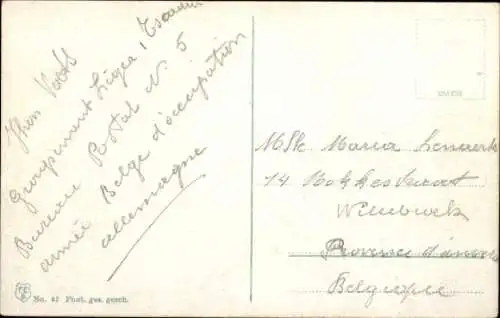 groupement Liège, Escadron
Bureau Postal N. 5
armée Belge d'occupation
allemagne
Mlle Maria Lenaerts
14
Willebroeck
Province d'anvers
Belgique
No. 42 Phot. ges. gesch.